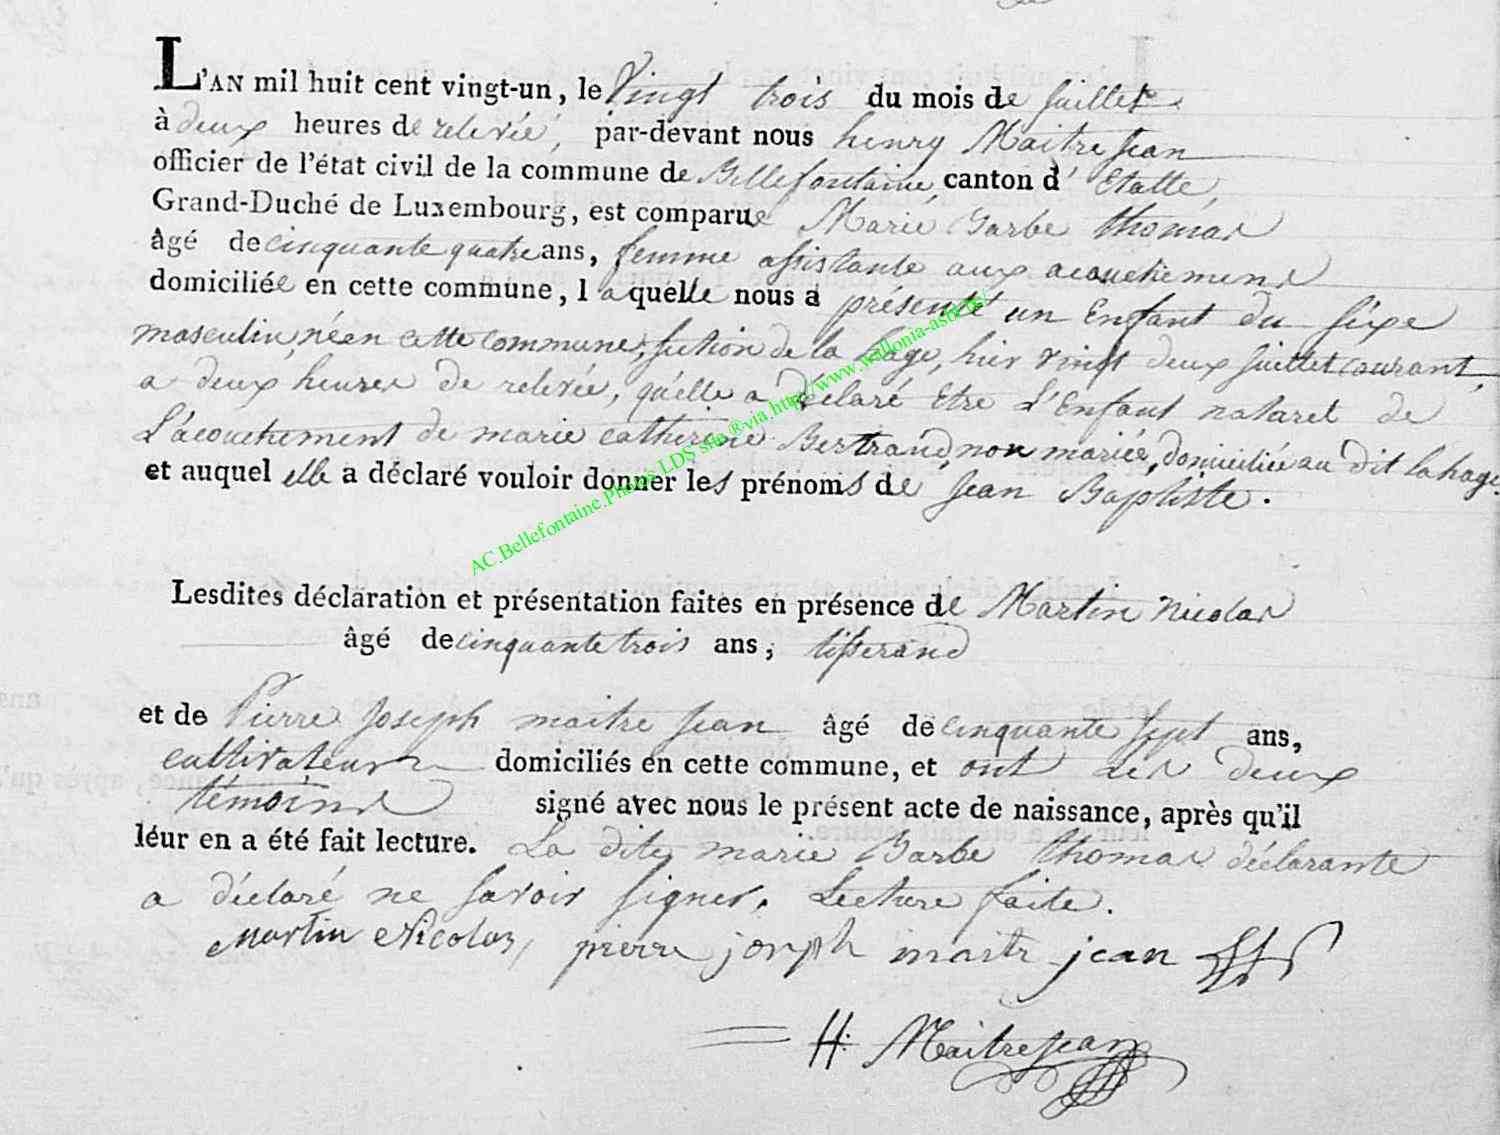 L'AN mil huit cent vingt-un, le Vingt trois du mois de juillet
à deux heures de relevée, par-devant nous henry Maitrejean
officier de l'état civil de la commune de Bellefontaine canton d'Etalle,
Grand-Duché de Luxembourg, est comparue Marie Barbe thomas
âgé de cinquante quatre ans, femme assistante aux acouchemens
domiciliée en cette commune, laquelle nous a présenté un Enfant du sexe
masculin, né en cette commune, section de la hage, hier vingt deux juillet courant,
a deux heures de relevée, qu'elle a déclaré Etre L'Enfant naturel de
L'acouchement de marie catherine Bertrand, non mariée, domiciliée au dit Lahage.
et auquel elle a déclaré vouloir donner les prénoms de jean Baptiste.
Lesdites déclaration et présentation faites en présence de Martin Nicolas
âgé de cinquante trois ans, tisserand
et de Pierre Joseph maitre jean âgé de cinquante sept ans,
cultivateur domiciliés en cette commune, et ont les deux
témoins signé avec nous le présent acte de naissance, après qu'il
leur en a été fait lecture. La dite marie Barbe thomas déclarante
a déclaré ne savoir signer. Lecture faite.
Martin Nicolas, pierre joseph maitr jean
H: Maitrejean
AC.Bellefontaine.Photos LDS snp®via.http://www.wallonia-asbl.be/